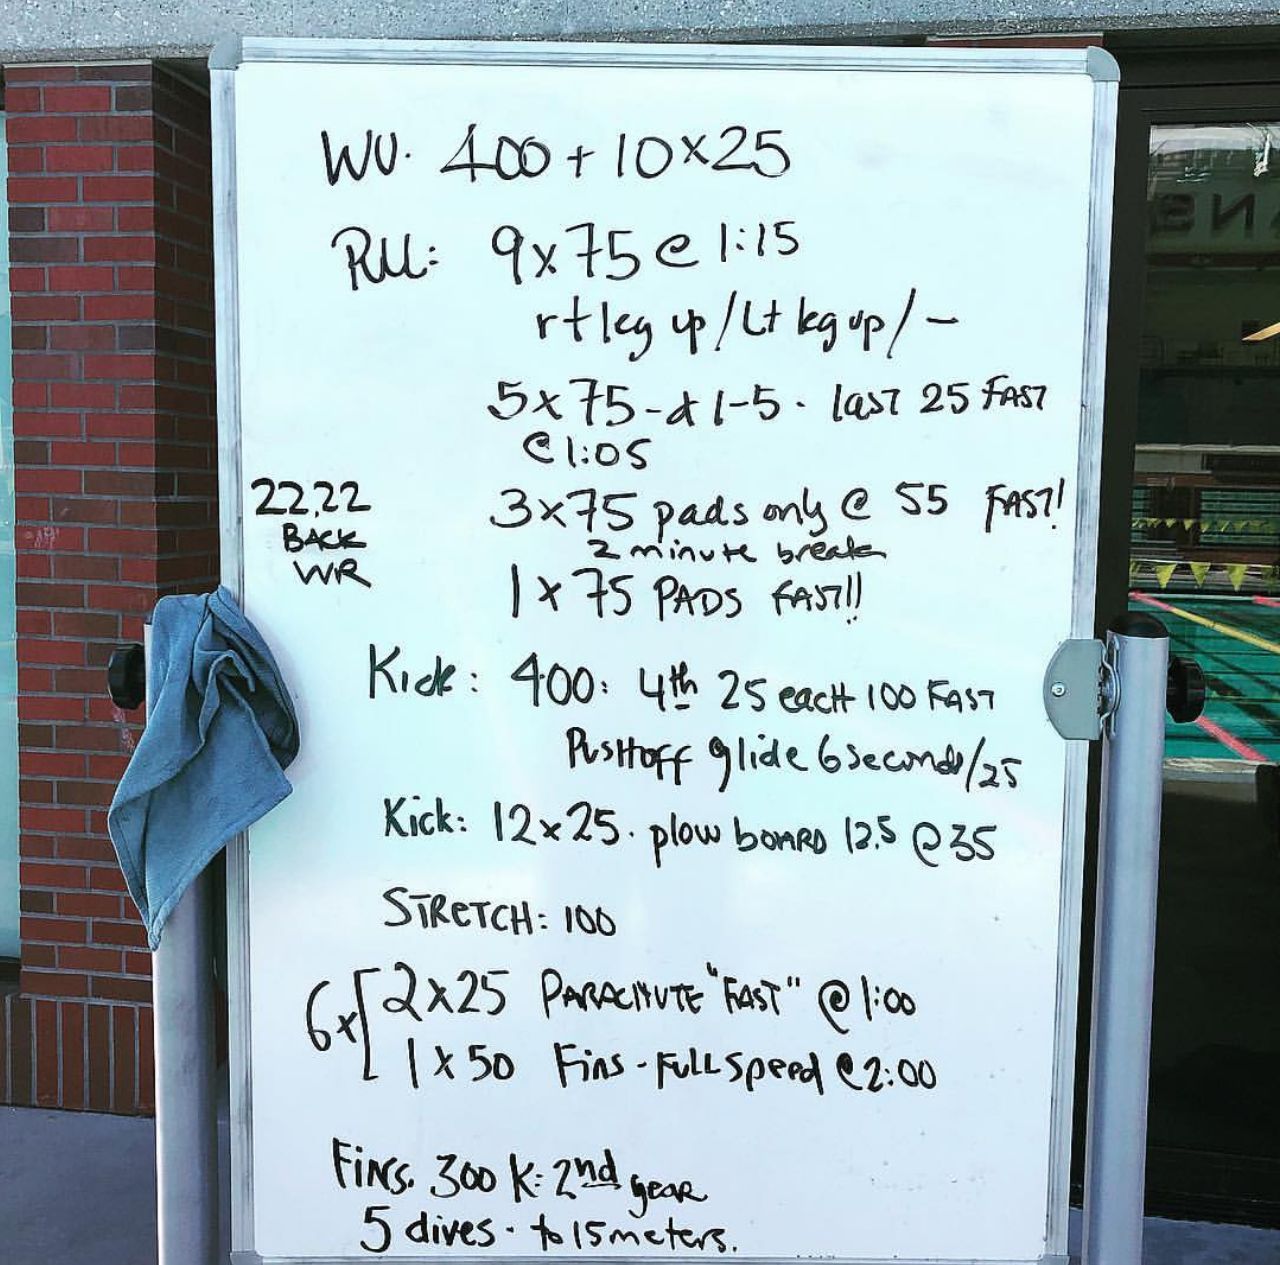 WU. 400 + 10x25
RU: 9x75 @ 1:15
rt leg up / Lt leg up / -
5x75 - d 1-5 . last 25 FAST
@ 1:05
22.22
BACK
WR
3x75 pads only @ 55 FAST!
2 minute break
1 x 75 PADS FAST!!
Kick: 400: 4th 25 each 100 FAST
Pushoff glide 6 seconds/25
Kick: 12x25. plow board 12.5 @ 35
STRETCH: 100
6x[ 2x25 PARACHUTE "FAST" @ 1:00
1 x 50 Fins - Full speed @ 2:00
Fins. 300 K: 2nd gear
5 dives . to 15 meters.